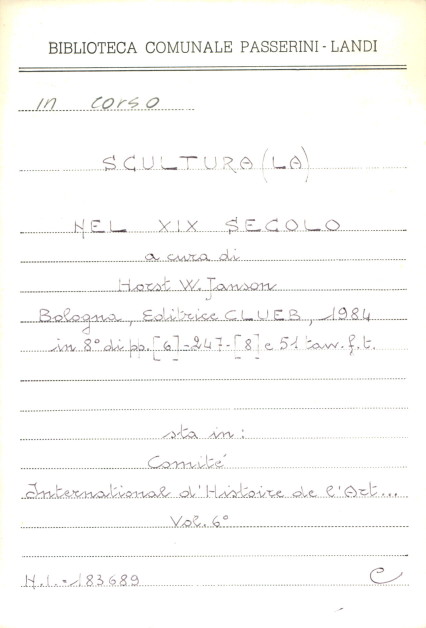 BIBLIOTECA COMUNALE PASSERINI - LANDI
in corso
SCULTURA (LA)
NEL XIX SECOLO
a cura di
Horst W. Janson
Bologna, Editrice CLUEB, 1984
in 8° di pp. [6]-247-[8] e 51 tav. f. t.
sta in:
Comité
International d'Histoire de l'Art...
Vol. 6°
N. I. - 183689 C